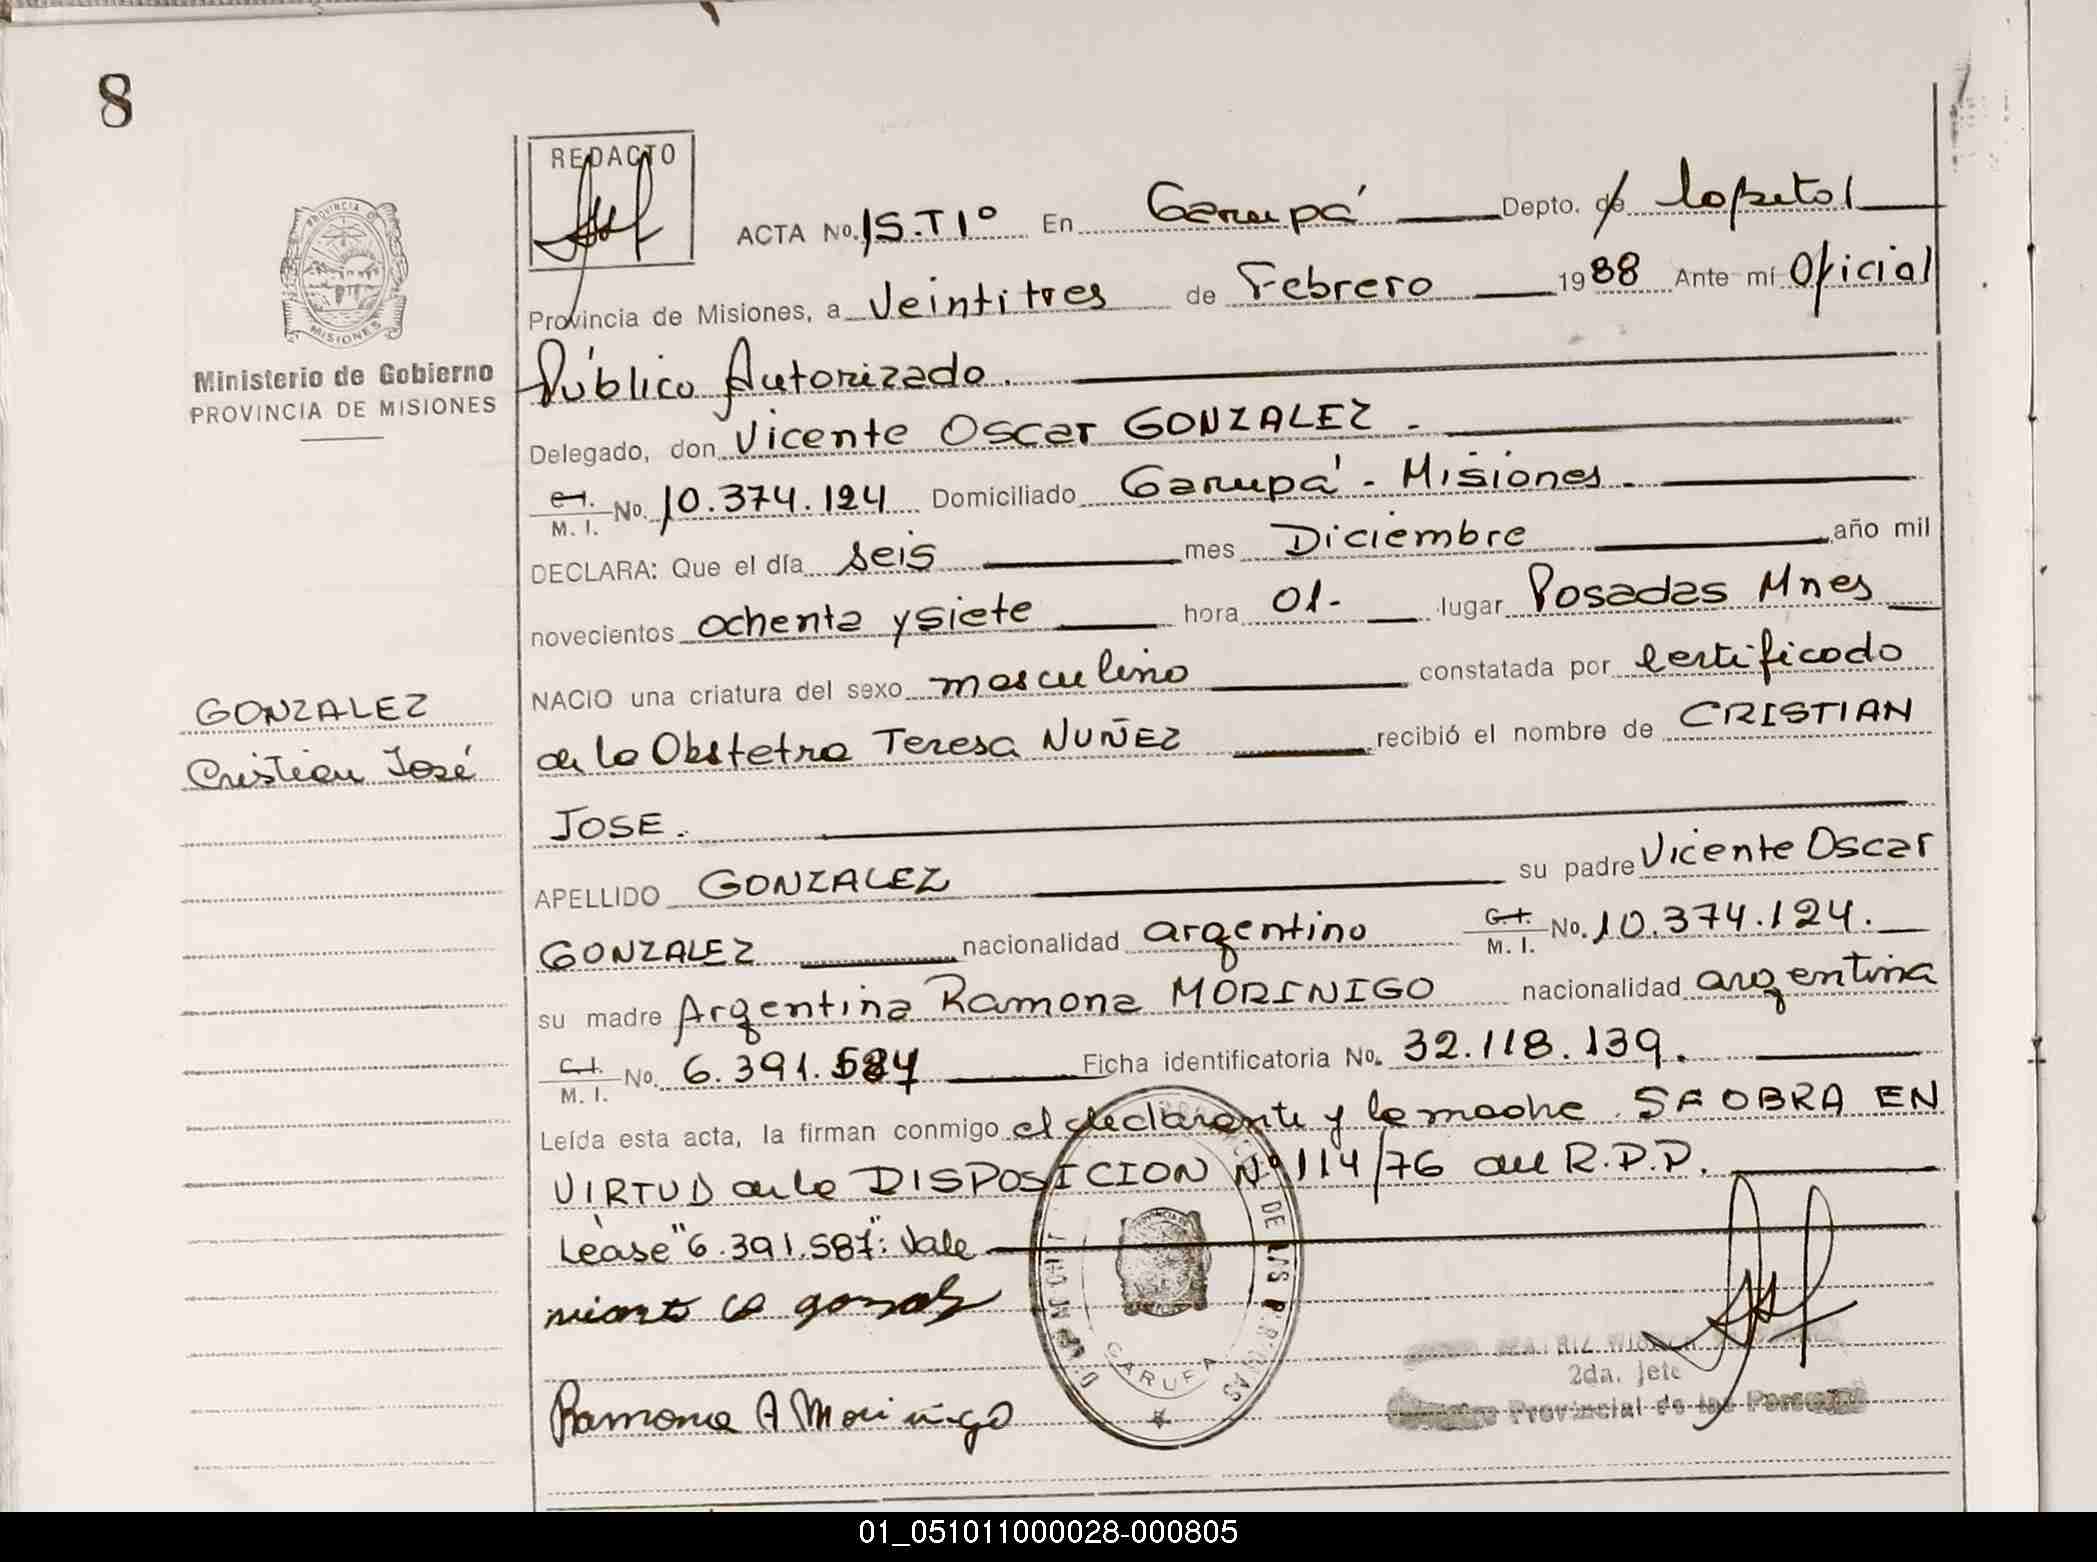 8
PROVINCIA D
MISIONES
Ministerio de Gobierno
PROVINCIA DE MISIONES
GONZALEZ
Cristian José
REDACTO
ACTA No. 15.T1° En Garupá Depto. de Capital
Provincia de Misiones, a Veintitres de Febrero 1988 Ante mí Oficial
Público Autorizado.
Delegado, don Vicente Oscar GONZALEZ.
C.I. M. I. No. 10.374.124 Domiciliado Garupá - Misiones.
DECLARA: Que el día seis mes Diciembre año mil
novecientos ochenta y siete hora 01- lugar Posadas Mnes
NACIO una criatura del sexo masculino constatada por Certificado
de la Obstetra Teresa NUÑEZ recibió el nombre de CRISTIAN
JOSE.
APELLIDO GONZALEZ su padre Vicente Oscar
GONZALEZ nacionalidad argentino C.I. M. I. No. 10.374.124.
su madre Argentina Ramona MORINIGO nacionalidad argentina
C.I. M. I. No. 6.391.587 Ficha identificatoria No. 32.118.139.
Leída esta acta, la firman conmigo el declarante y la madre. SE OBRA EN
VIRTUD de la DISPOSICION N° 114/76 del R.P.P.
Léase "6.391.587": Vale
Ramona A Morinigo
DE LAS
GARUPA
2da. Jefe
Provincial de las Personas
01_051011000028-000805